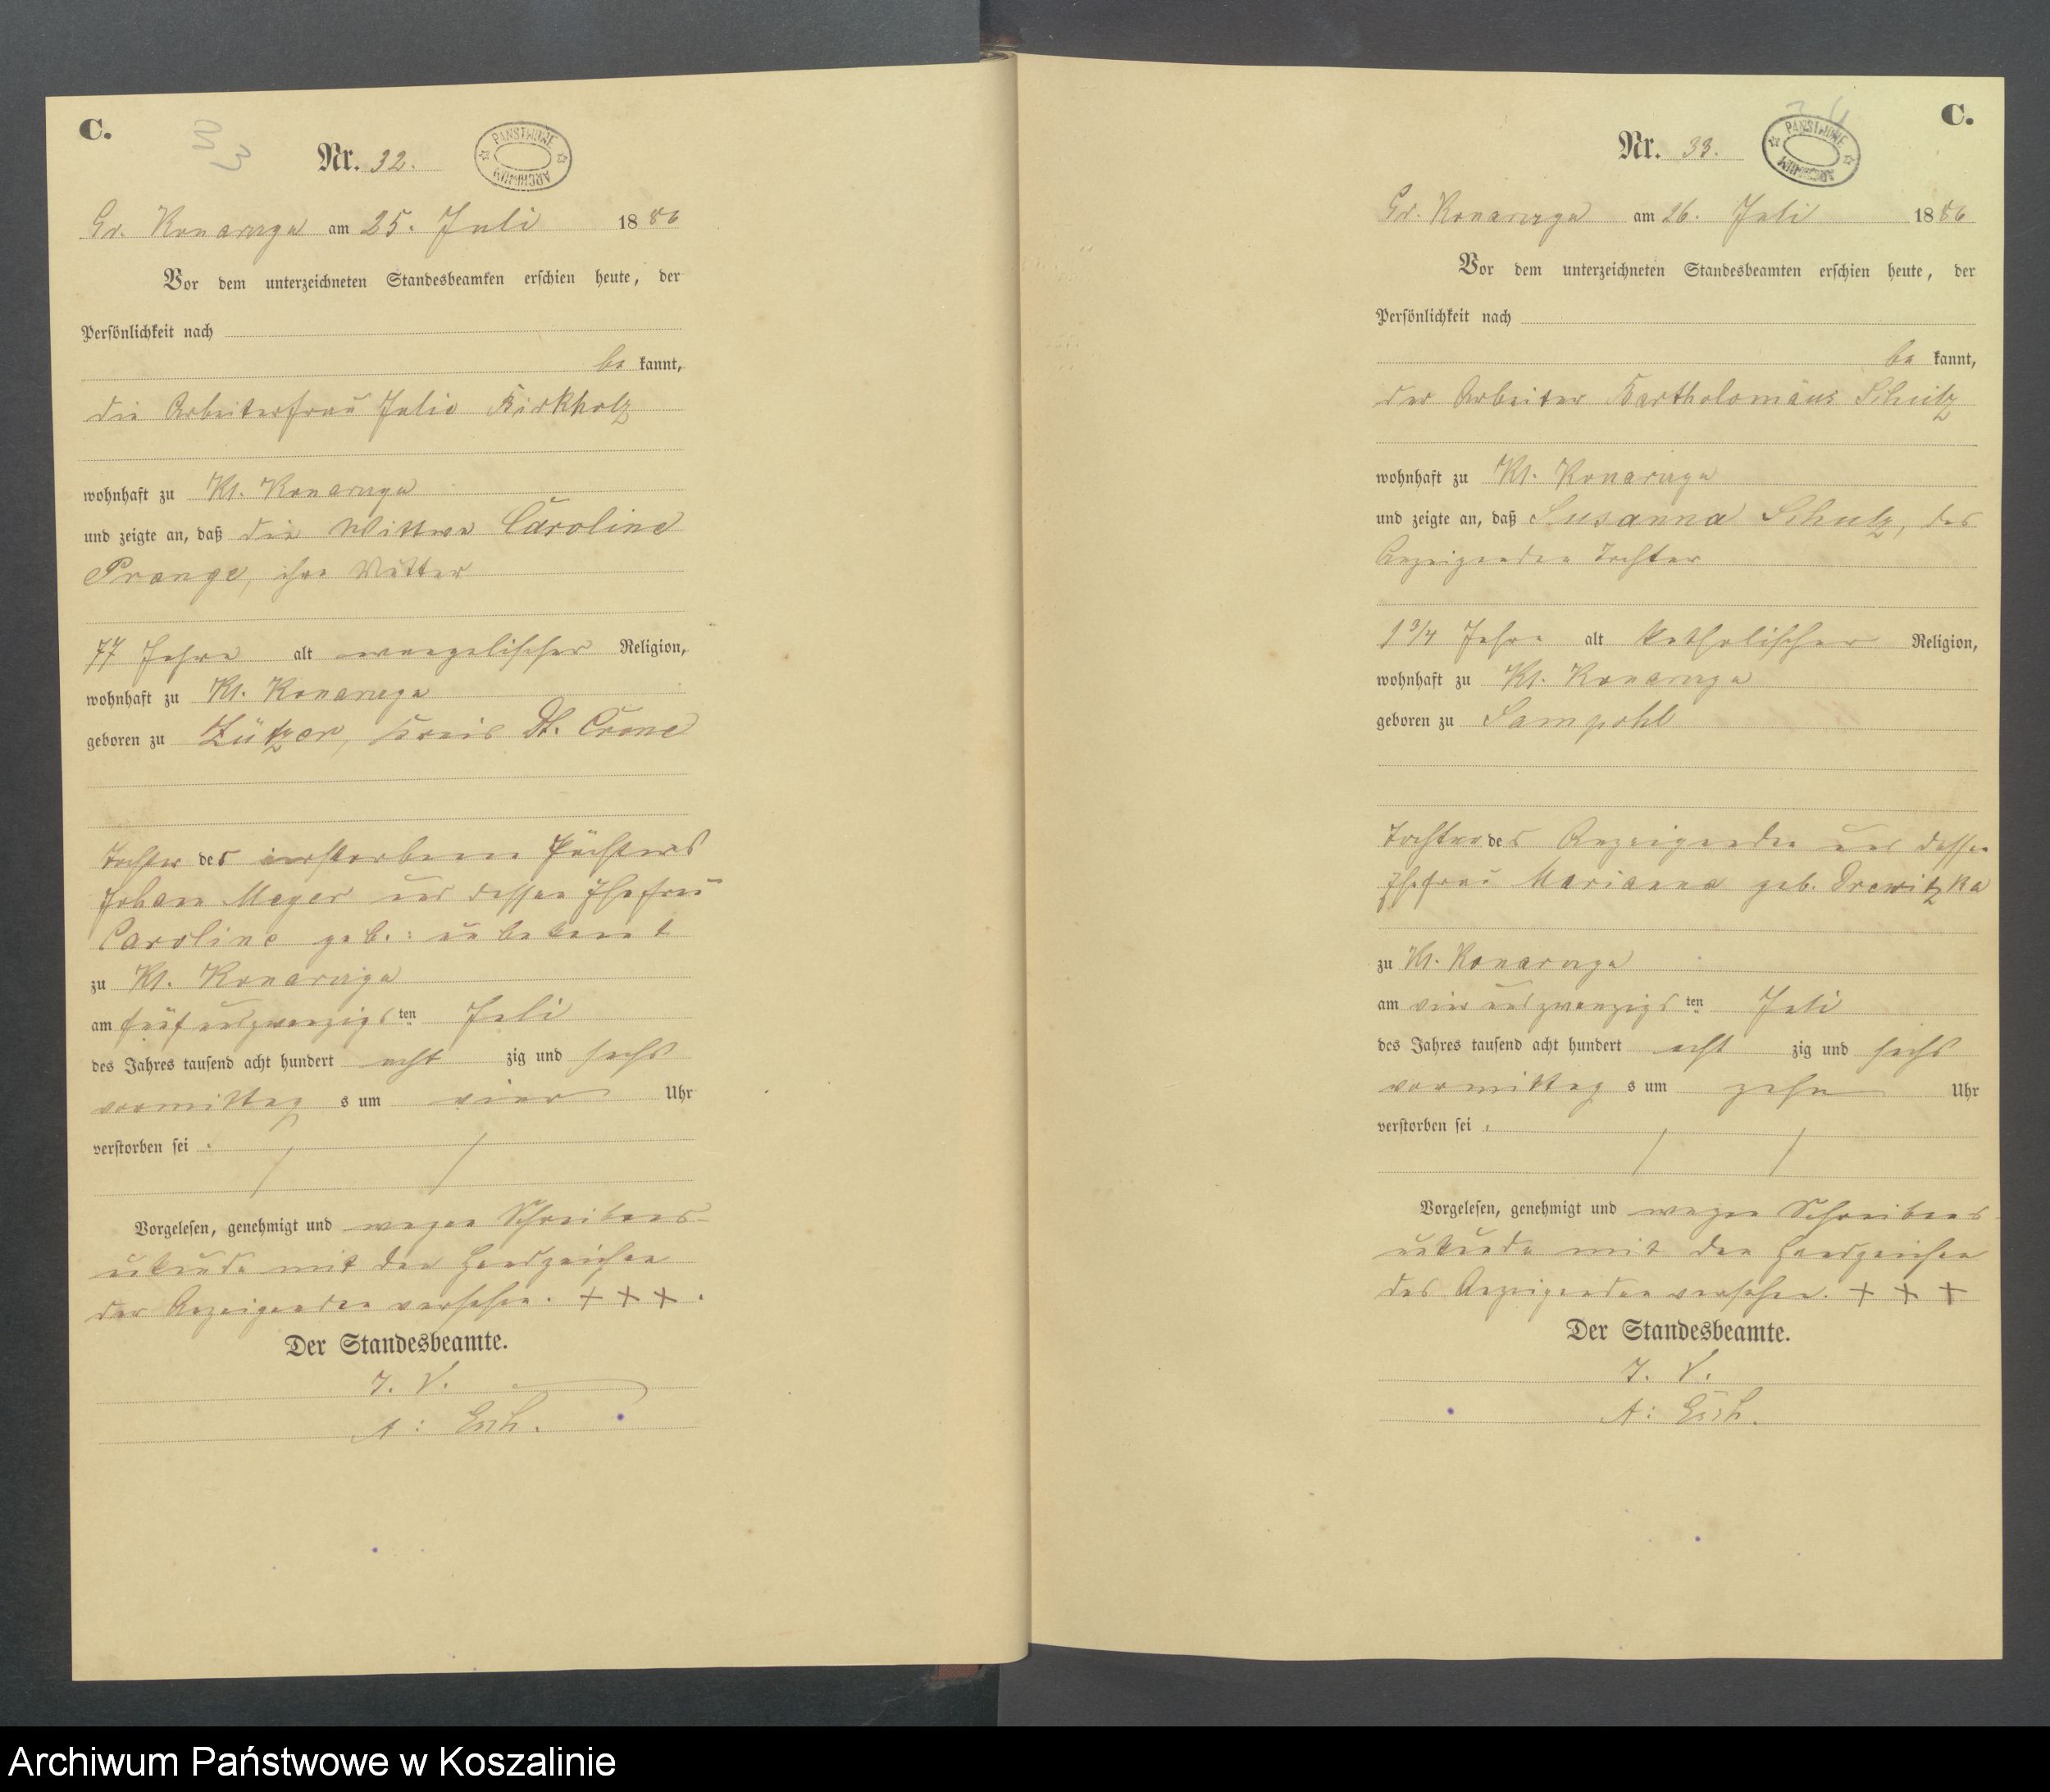 C.
33
Nr. 32.
PAŃSTWOWE ARCHIWUM
Gr. Konarzyn am 25. Juli 1886
Vor dem unterzeichneten Standesbeamten erschien heute, der
Persönlichkeit nach
be kannt,
die Arbeiterfrau Julie Birkholz
wohnhaft zu Kl. Konarzyn
und zeigte an, daß die Wittwe Caroline
Prange, ihre Mutter
77 Jahre alt evangelischer Religion,
wohnhaft zu Kl. Konarzyn
geboren zu Lützen, Kreis Dt. Crone
Tochter des verstorbenen Pächters
Johann Meyer und dessen Ehefrau
Caroline geb.: unbekannt
zu Kl. Konarzyn
am fünfundzwanzigsten Juli
des Jahres tausend acht hundert acht zig und sechs
vormittag s um vier Uhr
verstorben sei.
Vorgelesen, genehmigt und wegen Schreibens-
unkunde mit den Handzeichen
der Anzeigenden versehen. + + +.
Der Standesbeamte.
J. V.
A: Esch.
C.
34
Nr. 33.
PAŃSTWOWE ARCHIWUM
Gr. Konarzyn am 26. Juli 1886
Vor dem unterzeichneten Standesbeamten erschien heute, der
Persönlichkeit nach
be kannt,
der Arbeiter Bartholomäus Schulz
wohnhaft zu Kl. Konarzyn
und zeigte an, daß Susanna Schulz, des
Anzeigenden Tochter
1 3/4 Jahre alt katholischer Religion,
wohnhaft zu Kl. Konarzyn
geboren zu Sampohl
Tochter des Anzeigenden und dessen
Ehefrau Marianna geb. Drewitzka
zu Kl. Konarzyn
am vier und zwanzigsten Juli
des Jahres tausend acht hundert acht zig und sechs
vormittag s um zehn Uhr
verstorben sei.
Vorgelesen, genehmigt und wegen Schreibens-
unkunde mit den Handzeichen
des Anzeigenden versehen. + + +
Der Standesbeamte.
J. V.
A: Esch.
Archiwum Państwowe w Koszalinie